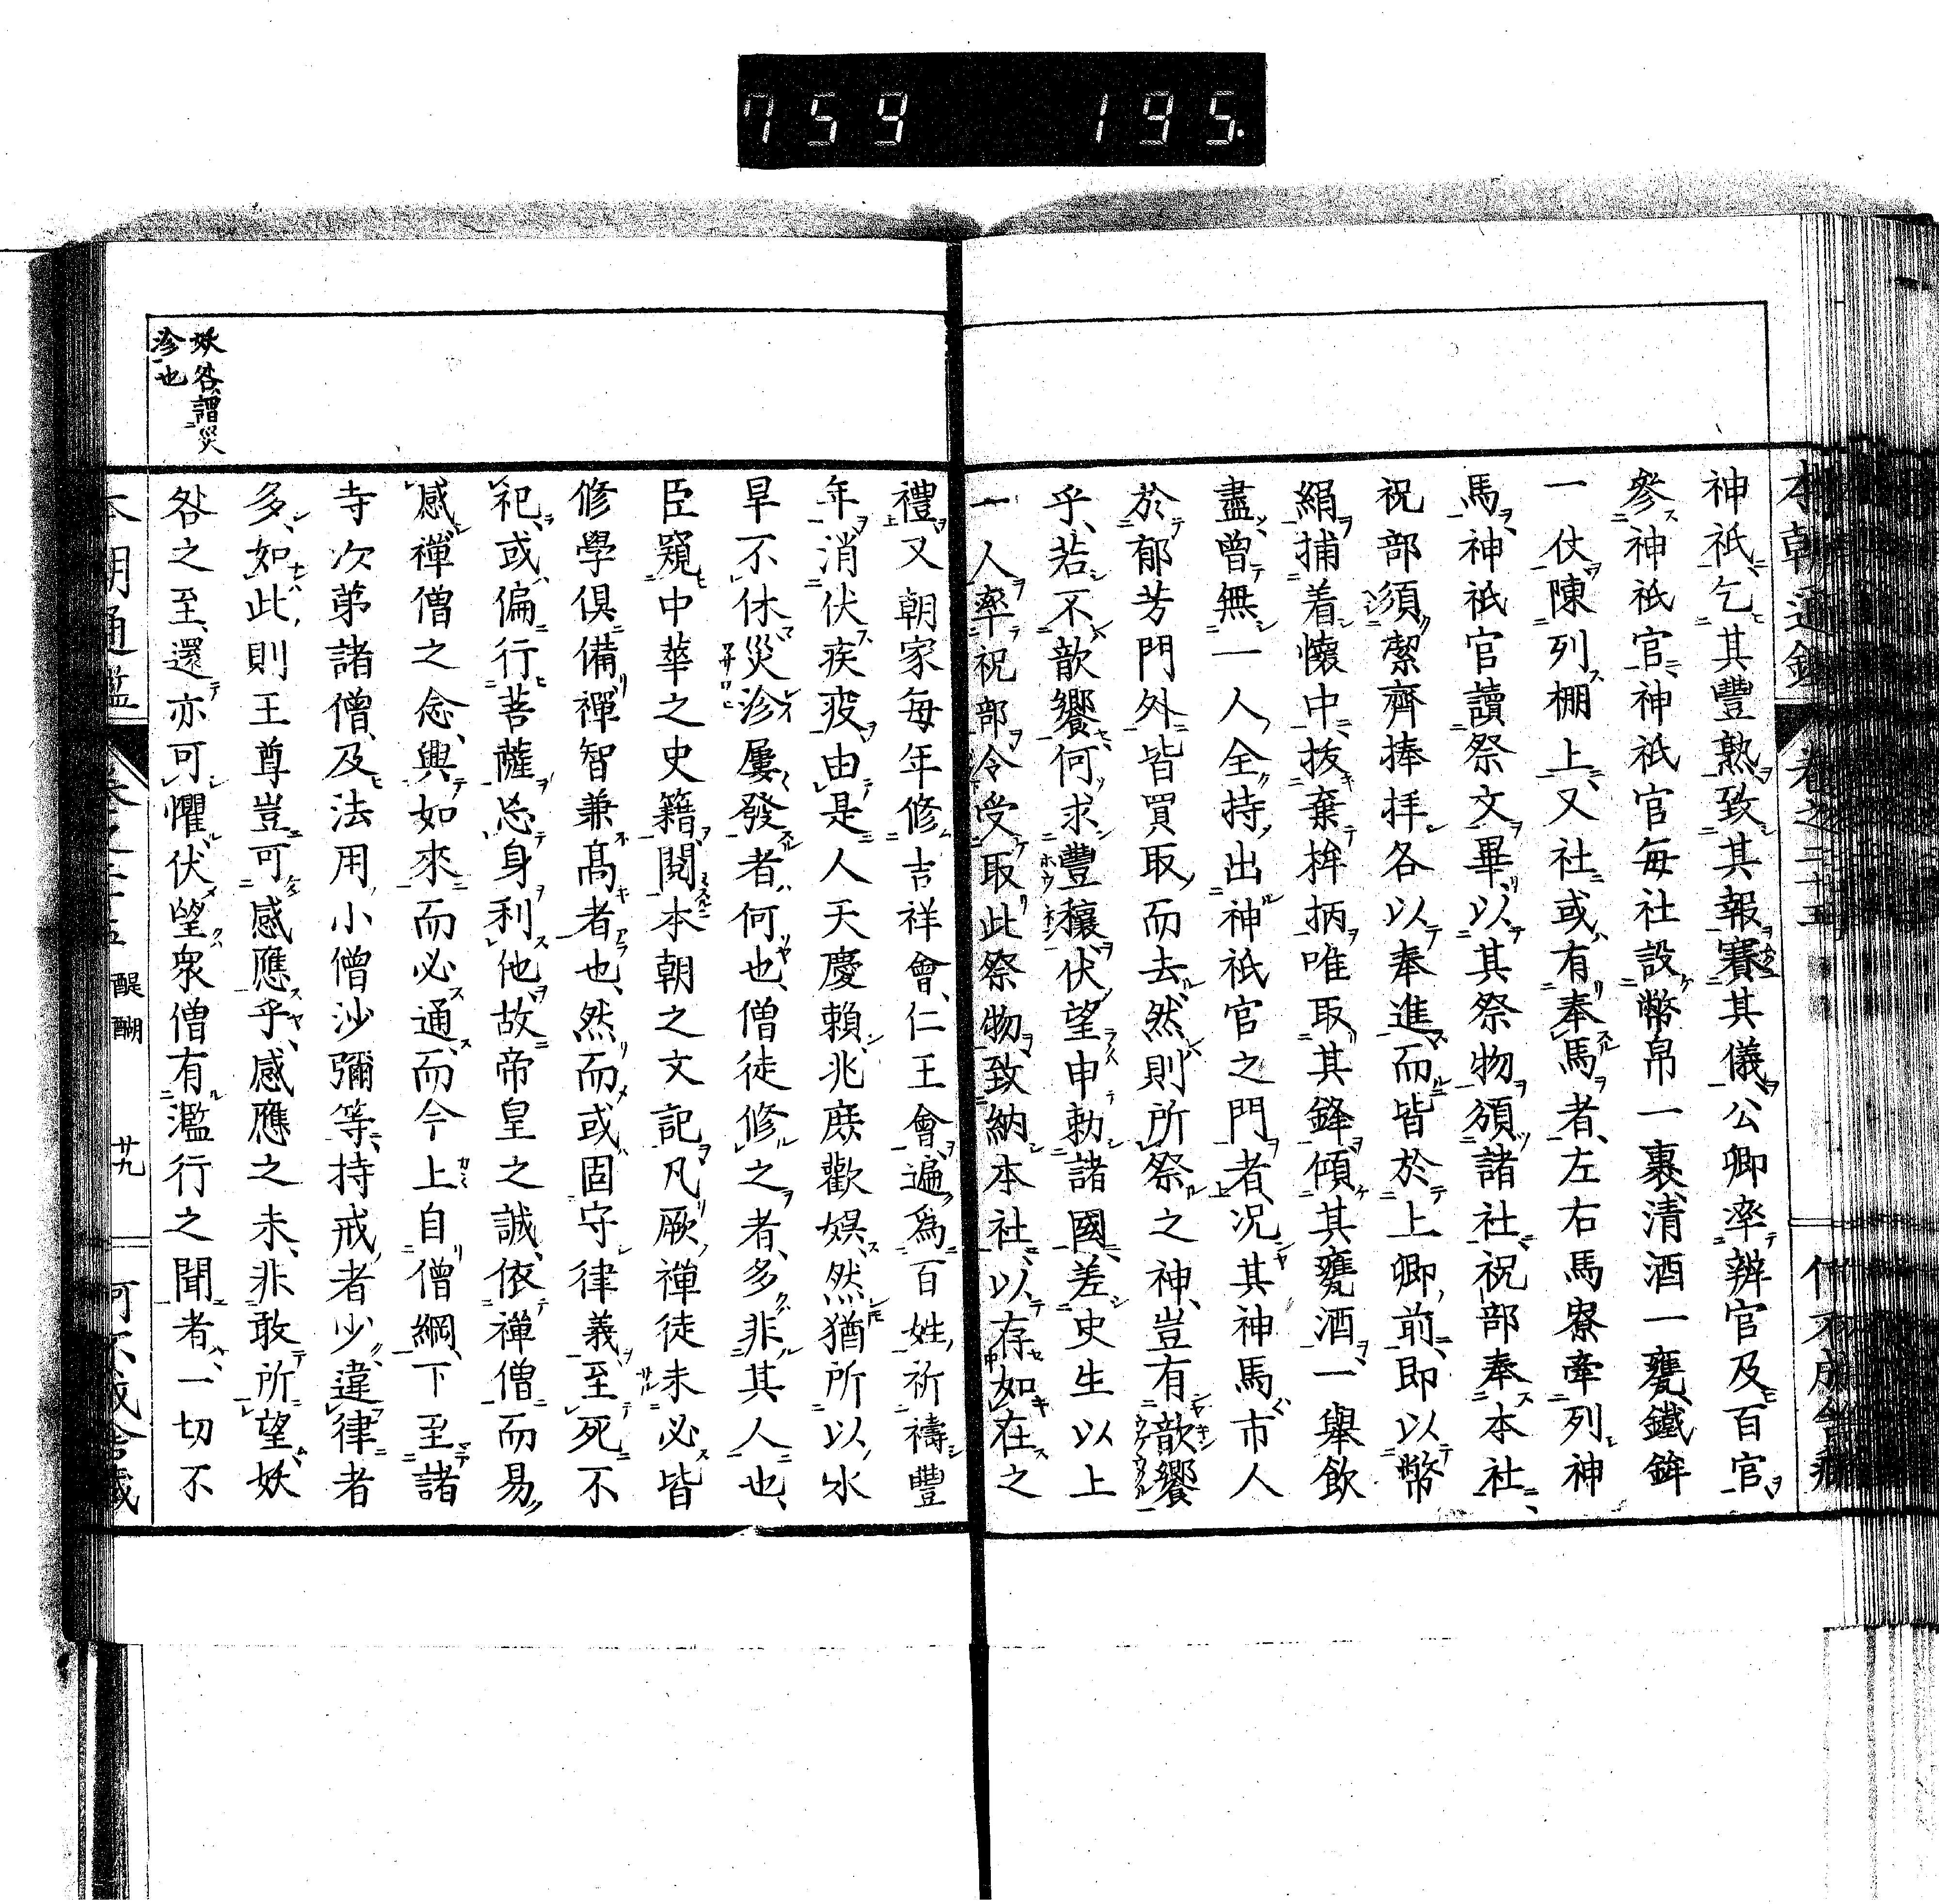 759 195.
神祇乞其豐熟致其報賽其儀公卿率辨官及百官
參神祇官神祇官每社設幣帛一裹清酒一甕鐵鉾
一仗陳列棚上又社或有奉馬者左右馬寮牽列神
馬神祇官讀祭文畢以其祭物頒諸社祝部奉本社
祝部須潔齊捧拝各以奉進而皆於上卿前即以幣
絹捕着懷中拔棄鉾柄唯取其鋒傾其甕酒一舉飲
盡曾無一人全持出神祇官之門者况其神馬市人
於郁芳門外皆買取而去然則所祭之神豈有歆饗
乎若不歆饗何求豐穰伏望申勅諸國差史生以上
一人率祝部令受取此祭物致納本社以存如在之
禮又朝家每年修吉祥會仁王會遍爲百姓祈禱豐
年消伏疾疫由是人天慶賴兆庶歡娯然猶所以水
旱不休災沴屢發者何也僧徒修之者多非其人也
臣窺中華之史籍閱本朝之文記凡厥禪徒未必皆
修學俱備禪智兼髙者也然而或固守律義至死不
犯或偏行菩薩忘身利他故帝皇之誠依禪僧而易
感禪僧之念與如來而必通而今上自僧綱下至諸
寺次第諸僧及法用小僧沙彌等持戒者少違律者
多如此則王尊豈可感應乎感應之未非敢所望妖
咎之至還亦可懼伏望衆僧有濫行之聞者一切不
妖咎謂災
沴也
本朝通鑑
醍醐
廿九